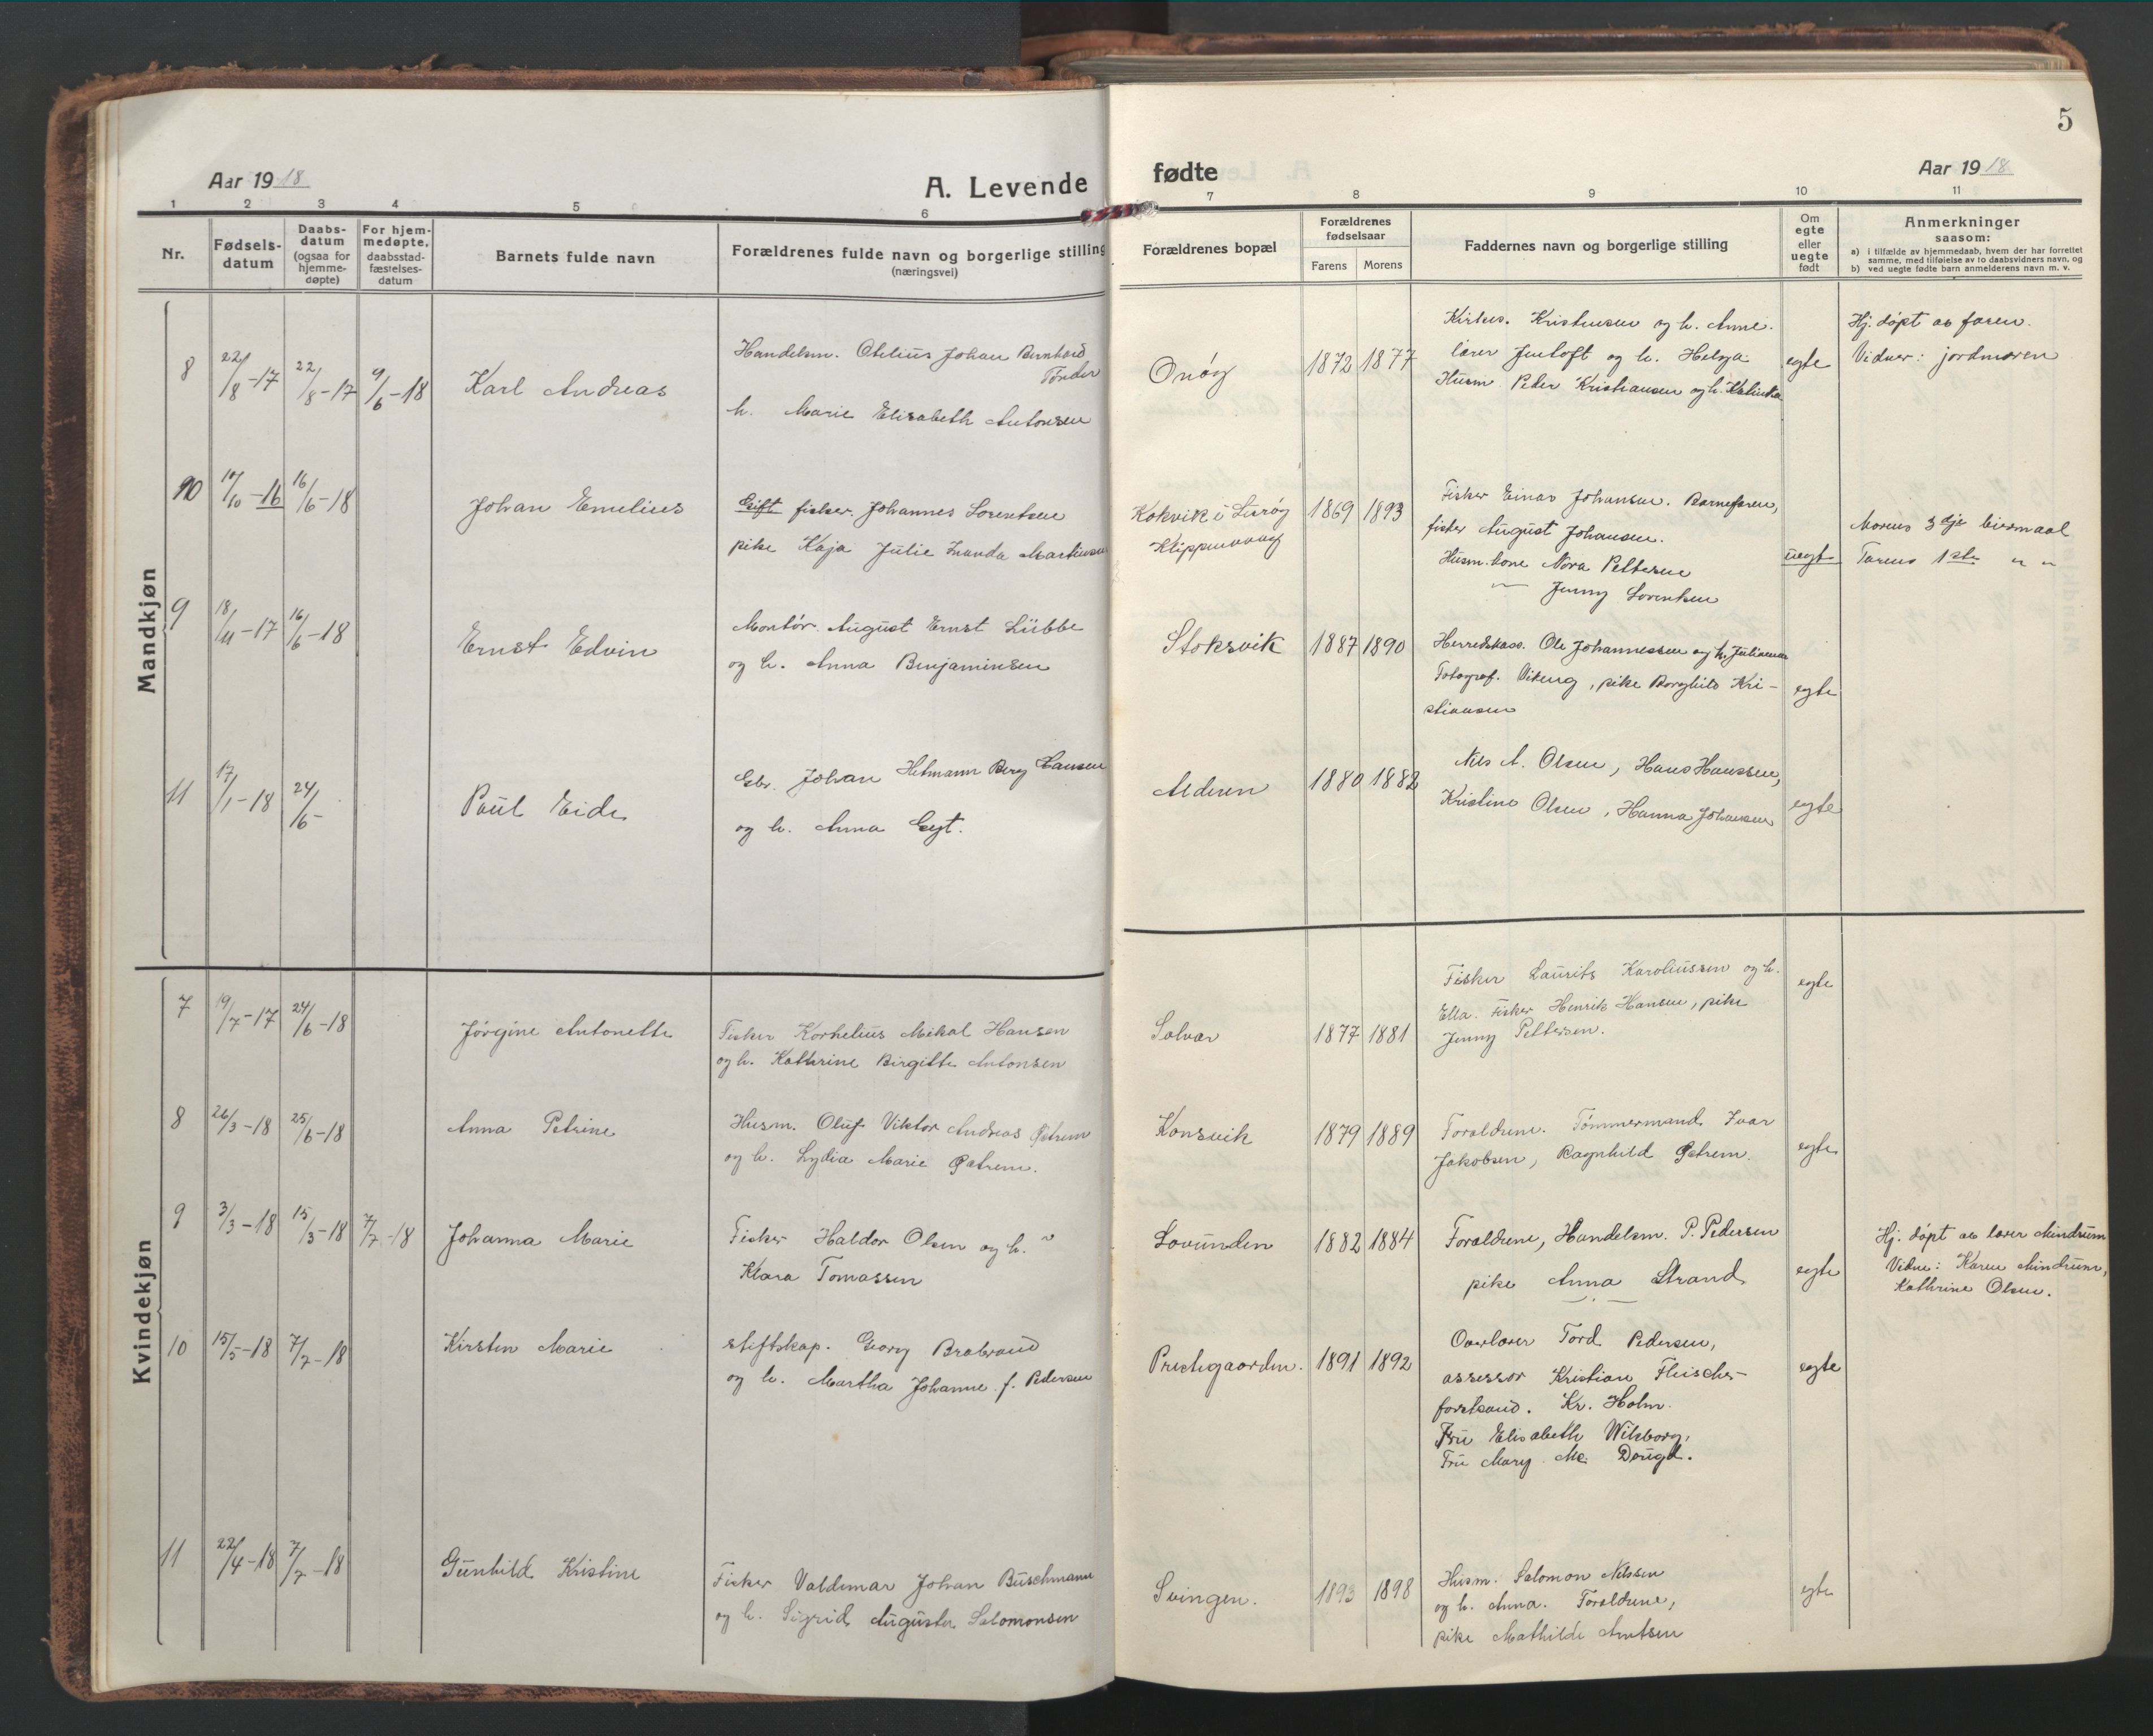 5
Aar 1918
A. Levende
fødte
Aar 1918
1 2 3 4 5 6 7 8 9 10 11
Nr.
Fødsels-
datum
Daabs-
datum
(ogsaa for
hjemme-
døpte)
For hjem-
medøpte,
daabsstad-
fæstelses-
datum
Barnets fulde navn
Forældrenes fulde navn og borgerlige stilling
(næringsvei)
Forældrenes bopæl
Forældrenes
fødselsaar
Farens Morens
Faddernes navn og borgerlige stilling
Om
egte
eller
uegte
født
Anmerkninger
saasom:
a) i tilfælde av hjemmedaab, hvem der har forrettet
samme, med tilføielse av to daabsvidners navn, og
b) ved uegte fødte barn anmelderens navn m. v.
Mandkjøn
8 22/8-17 22/8-17 9/6-18
Karl Andreas
Handelsm. Otelius Johan Bernhard
Tønder
h. Marie Elisabeth Antonsen
Onøy
1872 1877
Kirkes. Kristensen og h. Anne.
lærer Jentoft og h. Helga
Husm. Peder Kristiansen og h. Katinka
egte
Hj. døpt av faren.
Vidner: jordmoren
10 16/6-18
Johan Emelius
Gift fisker. Johannes Lorentsen
pike Kaja Julie Martinsen
Kokvik i Lurøy
1869 1893
Fisker Einar Johansen. Barnefaren,
fisker August Johansen.
Husm. kone Nora Pettersen
— Jenny Lorentsen
uegte
Morens 3dje leiermaal
Farens 1ste " "
9 18/11-17 16/6-18
Ernst Edvin
Montør. August Ernst Lübbe
og h. Anna Benjaminsen
Stoksvik
1887 1890
Herredskass. Ole Johannessen og h. Julianna
Fotograf. Viking, pike Borghild Kri-
stiansen
egte
11 17/1-18 24/6-
Paul Eide
Gbr. Johan Hetmann Berg Hansen
og h. Anna Gyt.
Alderen
1880 1882
Nils A. Olsen, Hans Hanssen,
Kristine Olsen, Hanna Johansen
egte
Kvindekjøn
7 19/7-17 24/6-18
Jørgine Antonette
Fisker Kornelius Mikal Hansen
og h. Kathrine Birgitte Antonsen
Solvær
1877 1881
Fisker Laurits Karoliussen og h.
Ella. Fisker Henrik Hansen, pike
Jenny Pettersen.
egte
8 26/3-18 25/6-18
Anna Petrine
Husm. Oluf Viktor Andreas Østrem
og h. Lydia Marie Østrem.
Konsvik
1879 1889
Forældrene. Tømmermand Ivar
Jakobsen, Ragnhild Østrem.
egte
9 3/3-18 15/3-18 7/7-18
Johanna Marie
Fisker Haldor Olsen og h.
Klara Tomassen
Lovunden
1882 1884
Forældrene, Handelsm. P. Pedersen
pike Anna Strand
egte
Hj. døpt av lærer Mindrum
Vidne: Karen Mindrum,
Kathrine Olsen.
10 15/5-18 7/7-18
Kirsten Marie
stiftskap. Georg Brabrand
og h. Martha Johanne f. Pedersen
Prestegaarden.
1891 1892
Overlærer Tord Pedersen,
assessor Kristian Fleischer
forstkand. Kr. Holm.
Fru Elisabeth Wilsborg,
Fru Mary Mc Dougal.
egte
11 22/4-18 7/7-18
Gunhild Kristine
Fisker Valdemar Johan Buschmann
og h. Sigrid Augusta Salomonsen
Svingen.
1893 1898
Husm. Salomon Nilssen
og h. Anna. Forældrene,
pike Mathilde Arntsen
egte